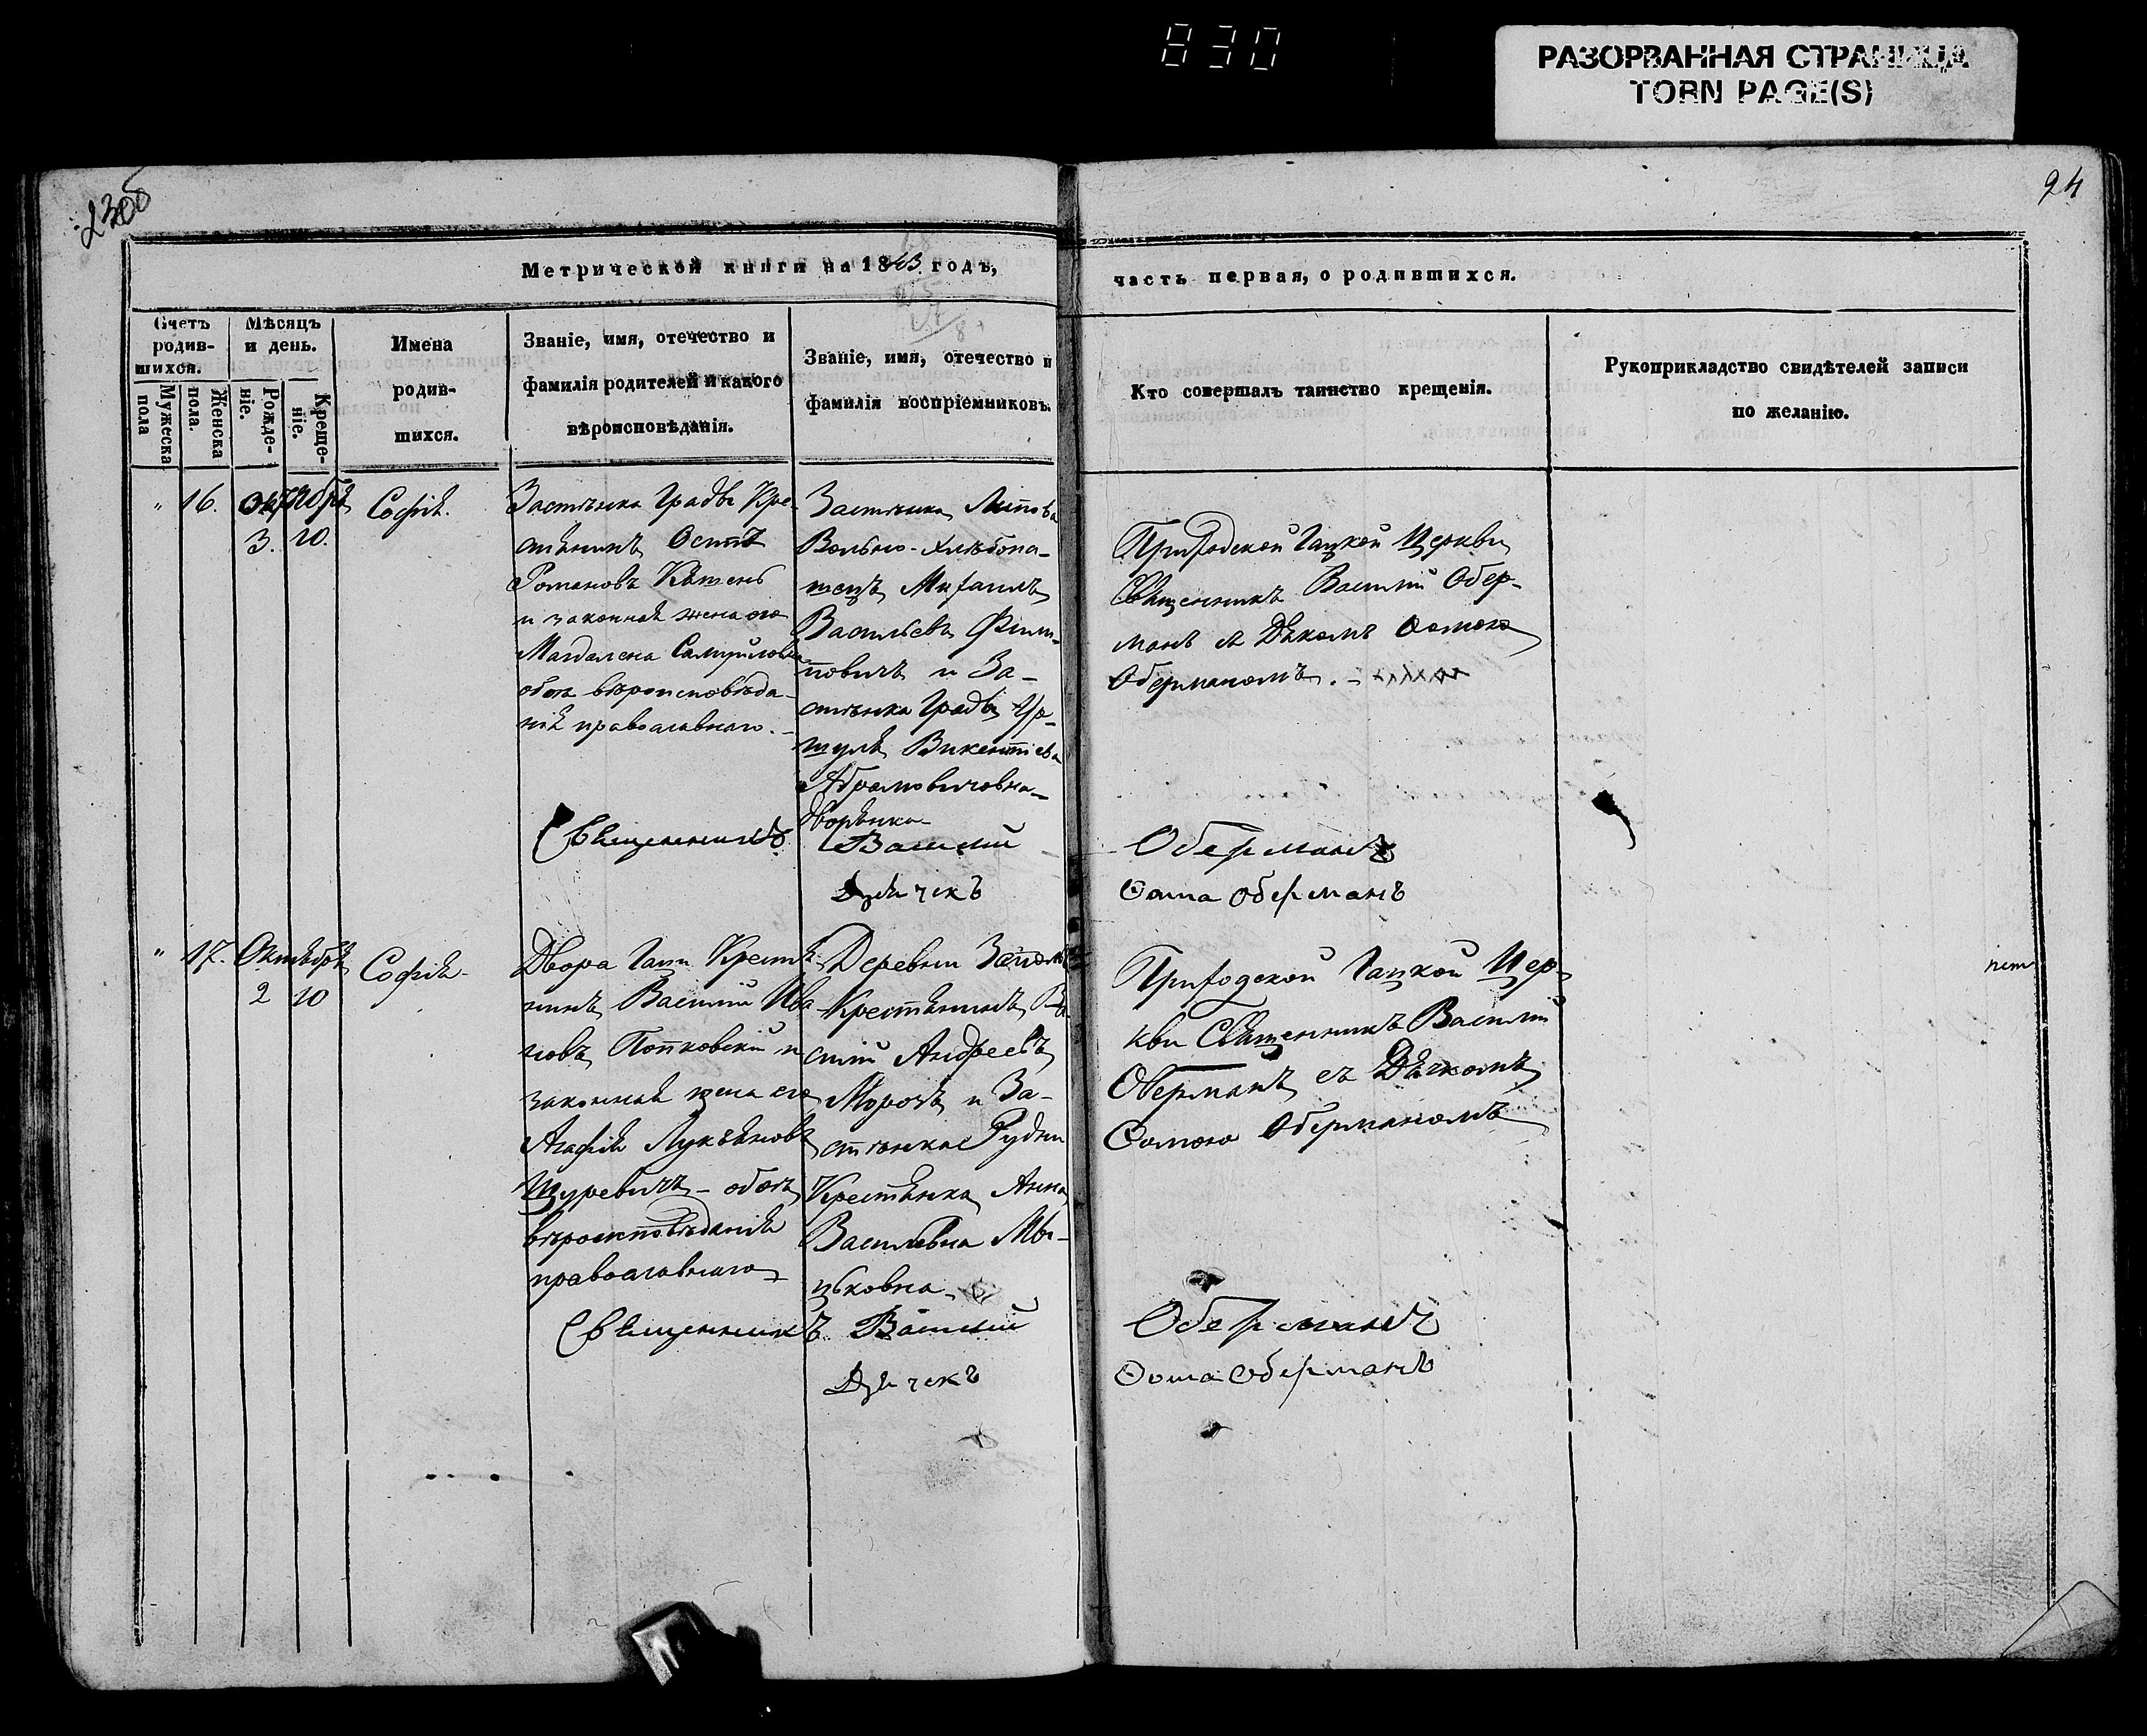 830
РАЗОРВАННАЯ СТРАНИЦА
TORN PAGE(S)
24
Метрической книги на 1863 годъ,
часть первая, о родившихся.
Счетъ родив-шихся.
Мужеска пола
Женска пола.
Мѣсяцъ и день.
Рожде-ніе.
Креще-ніе.
Имена
родив-
шихся.
Званіе, имя, отечество и
фамилія родителей и какого
вѣроисповѣданія.
Званіе, имя, отечество и
фамилія воспріемниковъ.
Кто совершалъ таинство крещенія.
Рукоприкладство свидѣтелей записи
по желанію.
" 16. Октября
3. 10.
Софія.
Застѣнка Грады Кре-
стянинъ Осипъ
Романовъ
и законная жена его
Магдалена
обоя вѣроисповѣда-
нія православнаго.-
Застѣнка Липова
Вольно-хлѣбопа-
шецъ Михаилъ
Васильевъ Филип-
повичъ и За-
стѣнка Грады Ур-
шуля Викентіева
Абрамовичовна-
дворянка-
Приходской Гацкой Церкви
Священникъ Василій Обер-
манъ съ Дьякомъ Ѳомою
Оберманомъ.-
Священникъ Василій Оберманъ
Дьячекъ Ѳома Оберманъ
" 17. Октября
2 10
Софія-
Двора Гаци Крестя-
нинъ Василій Ива
новъ Попковскій и
законная жена его
Агафія Лукьянова
Щуревичъ - обоя
вѣроисповѣданія
православнаго-
Деревни
Крестянинъ Ва
силій Андреевъ
Морозъ и За-
стѣнка Рудни
Крестянка Анна
Василевна Мы-
цьковна-
Приходской Гацкой Цер-
кви Священникъ Василій
Оберманъ съ Дьячкомъ
Ѳомою Оберманомъ
Священникъ Василій Оберманъ
Дьячекъ Ѳома Оберманъ